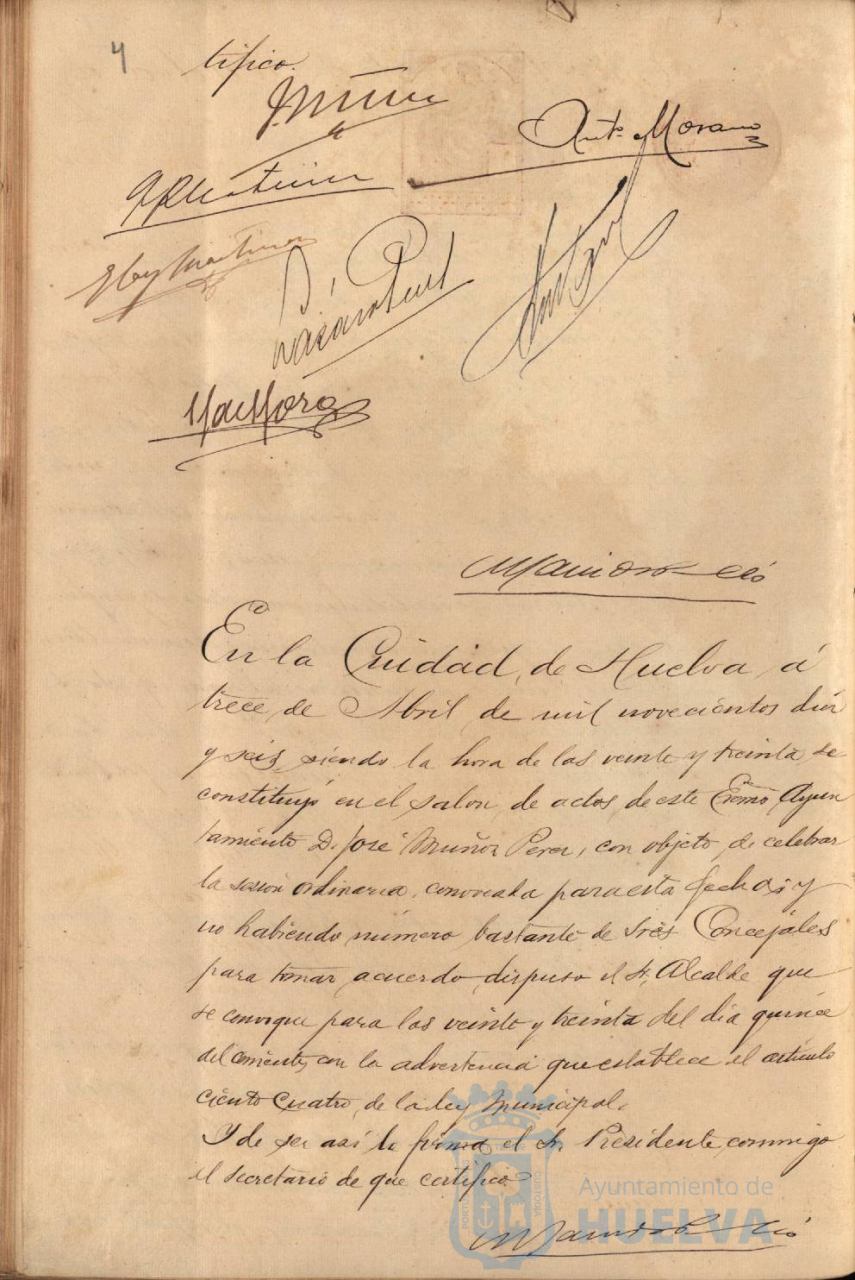 4
tifico.
Ant.º Morano
En la Ciudad, de Huelva, á
trece de Abril de mil novecientos diez
y seis, siendo la hora de las veinte y treinta se
constituyó en el salon, de actos, de este Excmo Ayun
tamiento D. José Muñoz Perez, con objeto, de celebrar
la sesión ordinaria, convocada para esta fecha; y
no habiendo número bastante de Sres Concejales
para tomar acuerdo, dispuso el Sr. Alcalde que
se convoque para las veinte y treinta del día quince
del corriente, con la advertencia que establece el artículo
ciento cuatro, de la ley Municipal.
Y de ser así lo firma el Sr. Presidente, conmigo
el secretario de que certifico
Ayuntamiento de
HUELVA